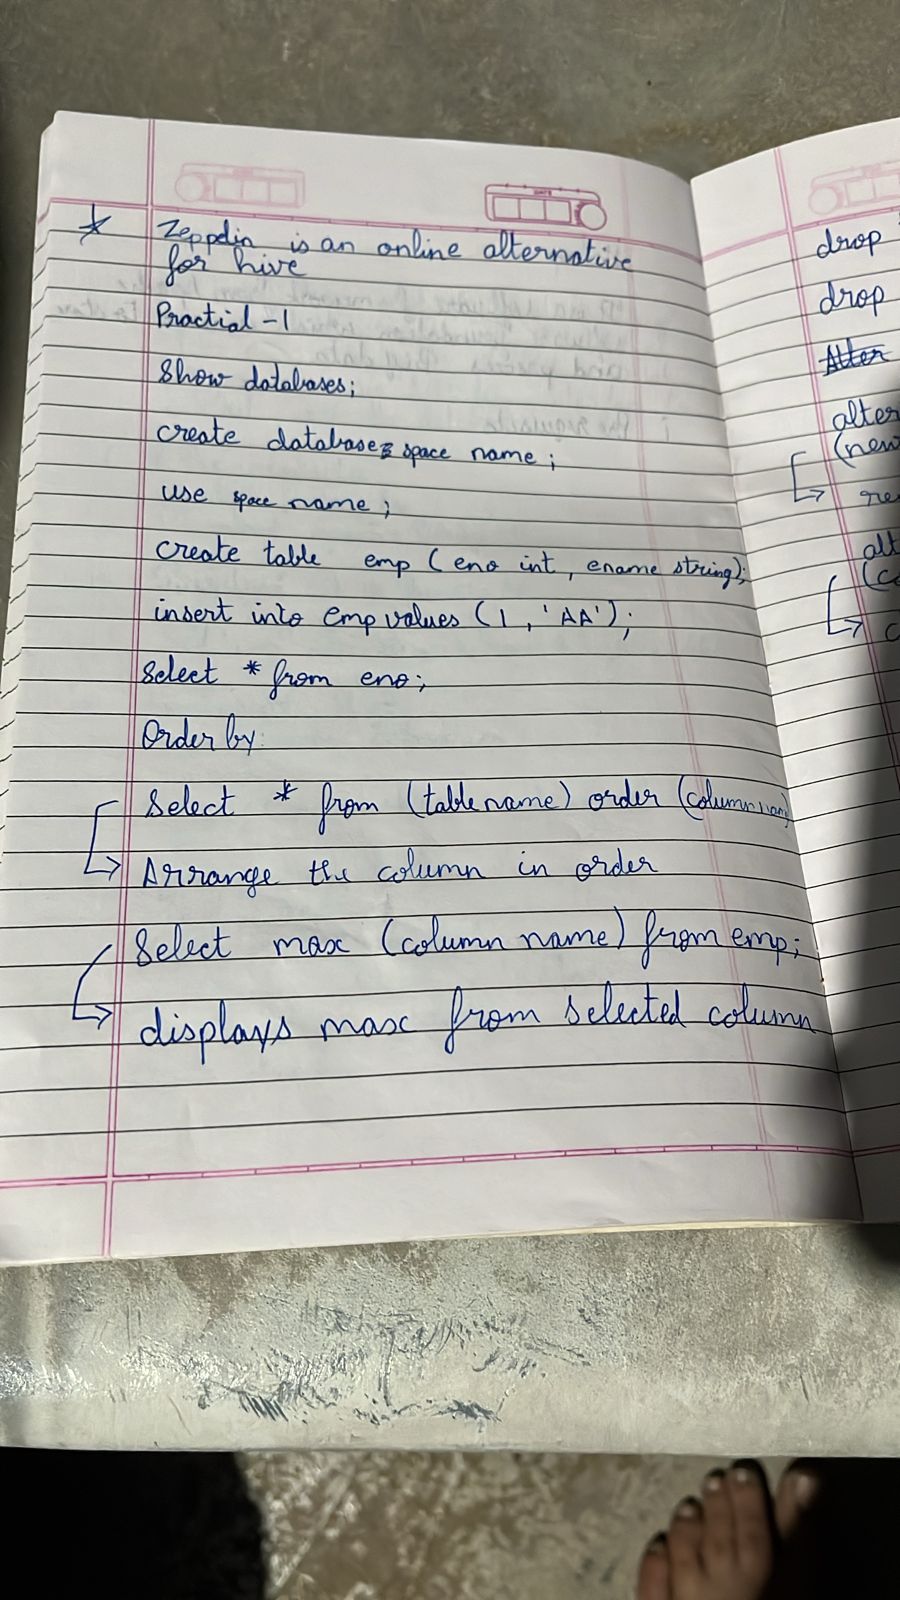 * Zeppelin is an online alternative
for hive
Practial - 1
Show databases;
create database space name ;
use space name ;
create table emp ( eno int , ename string );
insert into emp values ( 1 , 'AA' );
Select * from eno;
Order by:
Select * from (table name) order (column name)
Arrange the column in order
Select max (column name) from emp;
displays max from selected column
drop
drop
Alter
alter
(new